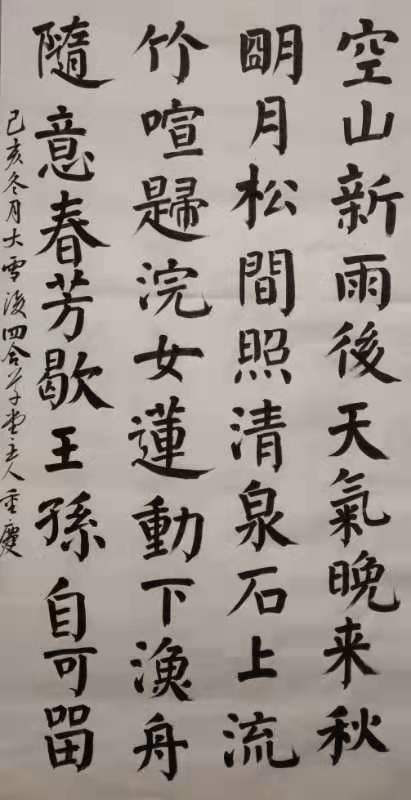 空山新雨後天氣晚来秋
朙月松間照清泉石上流
竹喧歸浣女蓮動下漁舟
隨意春芳歇王孫自可留
己亥冬月大雪後四合草堂主人重慶